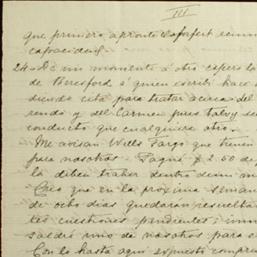 III
que primero apronte
capacidad.
24. De un momento á otro espero la
de Beresford á quien escribí hace
diendo cita para tratar acerca del
rendo y del Carmen pues tal vez se
conducto que cualquiera otro.
Me avisan Wells Fargo que tienen
para nosotros. Pagué $2.50 de
la deben traher dentro de
Creo que en la próxima semana
de ocho días quedarán resueltas
tes cuestiones pendientes; inme
saldrá uno de nosotros para
Con lo hasta aquí expuesto compren